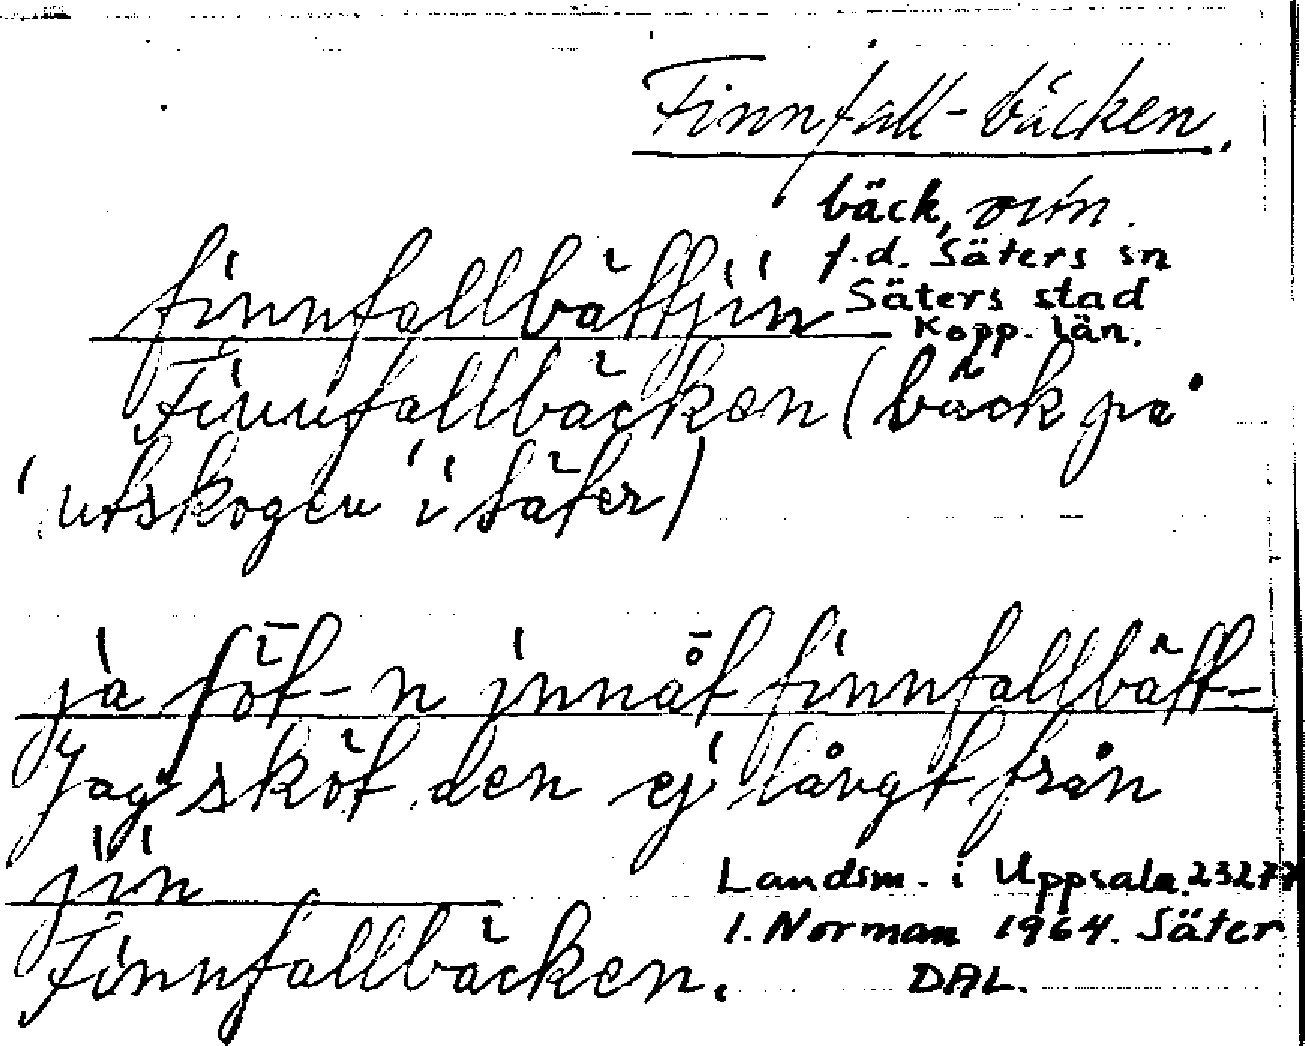 Finnfall-bäcken.
bäck,
f.d. Säters sn
finnfallbättjin Säters stad
Kopp. län.
Finnfallbäcken (bäck på
utskogen i Säter)
ja söt-n innåt finnfallbätt-
Jag sköt den ej långt från
jin
Landsm. i Uppsala. 23277
Finnfallbäcken.
I. Norman 1964. Säter
DAL.